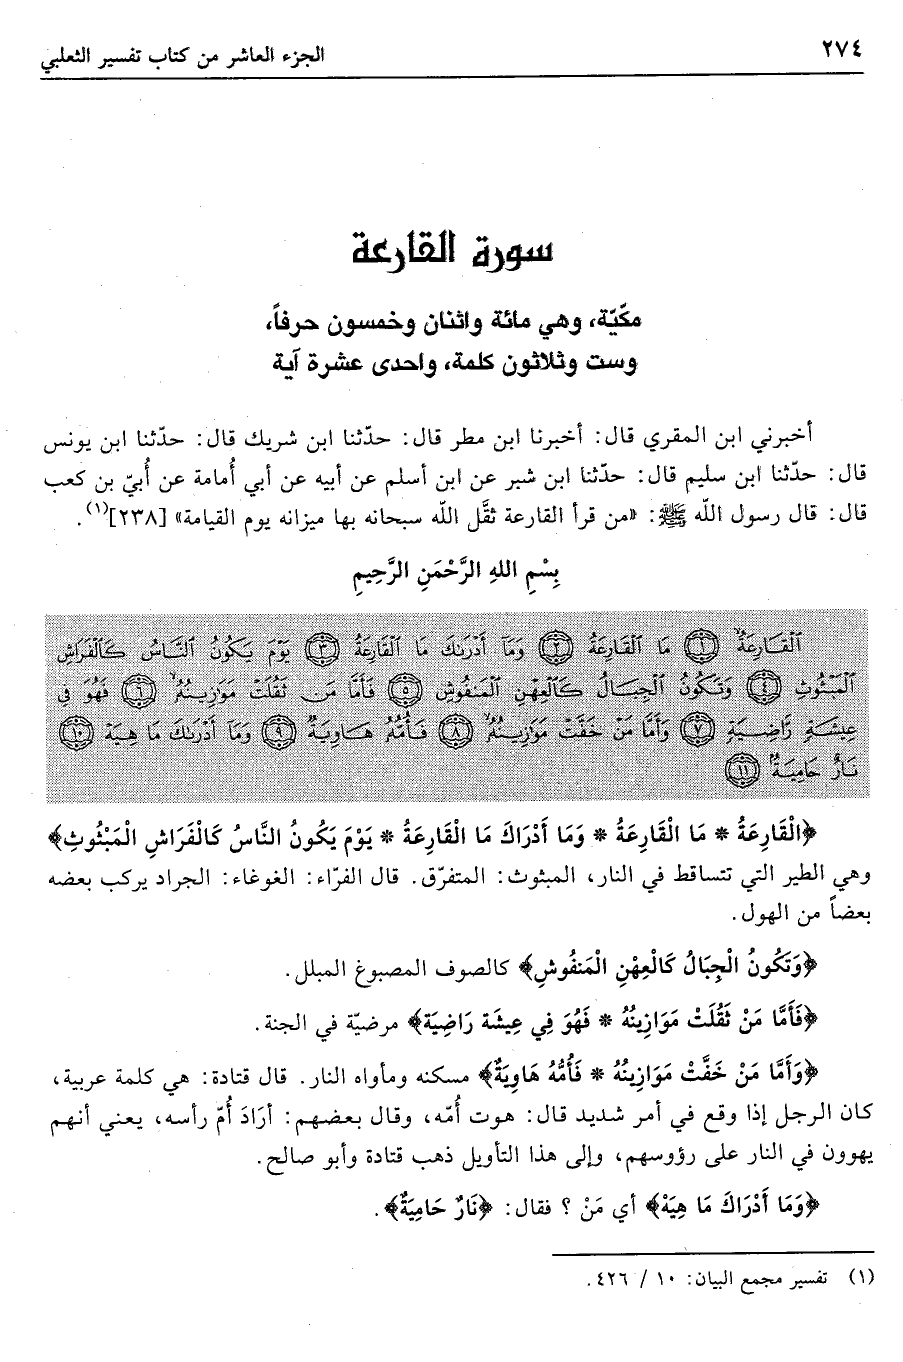 ٢٧٤
الجزء العاشر من كتاب تفسير الثعلبي
سورة القارعة
مكّيّة، وهي مائة واثنان وخمسون حرفاً،
وست وثلاثون كلمة، واحدى عشرة آية
أخبرني ابن المقري قال: أخبرنا ابن مطر قال: حدّثنا ابن شريك قال: حدّثنا ابن يونس
قال: حدّثنا ابن سليم قال: حدّثنا ابن شبر عن ابن أسلم عن أبيه عن أبي أُمامة عن أُبيّ بن كعب
قال: قال رسول الله ﷺ: «من قرأ القارعة ثقَّل الله سبحانه بها ميزانه يوم القيامة» [٢٣٨](١).
بِسْمِ اللهِ الرَّحْمَنِ الرَّحِيمِ
ٱلْقَارِعَةُ ﴿١﴾ مَا ٱلْقَارِعَةُ ﴿٢﴾ وَمَآ أَدْرَىٰكَ مَا ٱلْقَارِعَةُ ﴿٣﴾ يَوْمَ يَكُونُ ٱلنَّاسُ كَٱلْفَرَاشِ
ٱلْمَبْثُوثِ ﴿٤﴾ وَتَكُونُ ٱلْجِبَالُ كَٱلْعِهْنِ ٱلْمَنفُوشِ ﴿٥﴾ فَأَمَّا مَن ثَقُلَتْ مَوَٰزِينُهُۥ ﴿٦﴾ فَهُوَ فِى
عِيشَةٍ رَّاضِيَةٍ ﴿٧﴾ وَأَمَّا مَنْ خَفَّتْ مَوَٰزِينُهُۥ ﴿٨﴾ فَأُمُّهُۥ هَاوِيَةٌ ﴿٩﴾ وَمَآ أَدْرَىٰكَ مَا هِيَهْ ﴿١٠﴾
نَارٌ حَامِيَةٌۢ ﴿١١﴾
﴿الْقَارِعَةُ * مَا الْقَارِعَةُ * وَمَا أَدْرَاكَ مَا الْقَارِعَةُ * يَوْمَ يَكُونُ النَّاسُ كَالْفَرَاشِ الْمَبْثُوثِ﴾
وهي الطير التي تتساقط في النار، المبثوث: المتفرّق. قال الفرّاء: الغوغاء: الجراد يركب بعضه
بعضاً من الهول.
﴿وَتَكُونُ الْجِبَالُ كَالْعِهْنِ الْمَنفُوشِ﴾ كالصوف المصبوغ المبلل.
﴿فَأَمَّا مَنْ ثَقُلَتْ مَوَازِينُهُ * فَهُوَ فِي عِيشَة رَاضِيَة﴾ مرضيّة في الجنة.
﴿وَأَمَّا مَنْ خَفَّتْ مَوَازِينُهُ * فَأُمُّهُ هَاوِيَةٌ﴾ مسكنه ومأواه النار. قال قتادة: هي كلمة عربية،
كان الرجل إذا وقع في أمر شديد قال: هوت أُمّه، وقال بعضهم: أرَادَ أُمّ رأسه، يعني أنهم
يهوون في النار على رؤوسهم، وإلى هذا التأويل ذهب قتادة وأبو صالح.
﴿وَمَا أَدْرَاكَ مَا هِيَهْ﴾ أي مَنْ ؟ فقال: ﴿نَارٌ حَامِيَةٌ﴾.
(١) تفسير مجمع البيان: ١٠ / ٤٢٦.